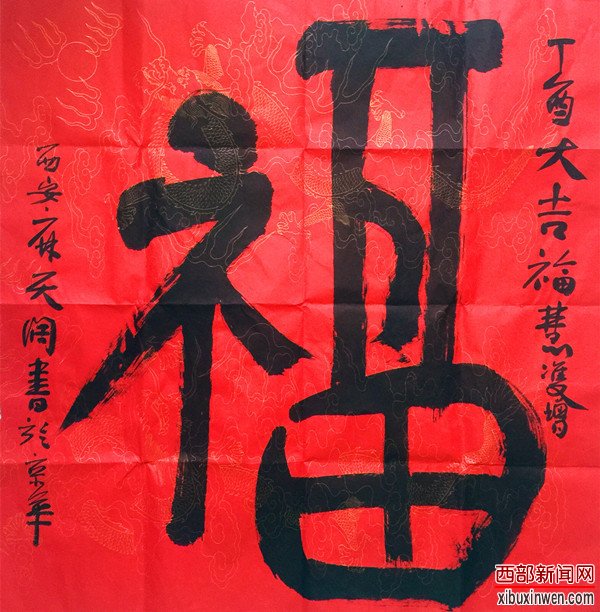 丁酉大吉福慧雙增
福
西安麻天阔書於京華
西部新闻网
xibuxinwen.com